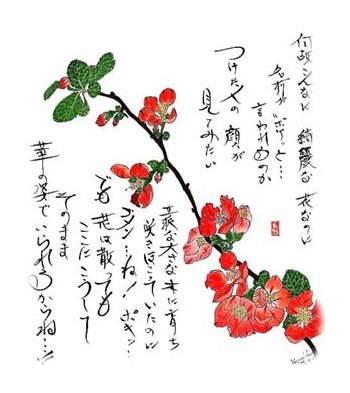 何故こんなに 綺麗な 花なのに
名前が"ボケっ"と…
言われるのか
つけた人の顔が
見てみたい
な大きな木に育ち
咲きほこっていたのに
ポキン…
でも 花は散っても
ここにこうして
そのまま
華の姿でいられるからね…!!